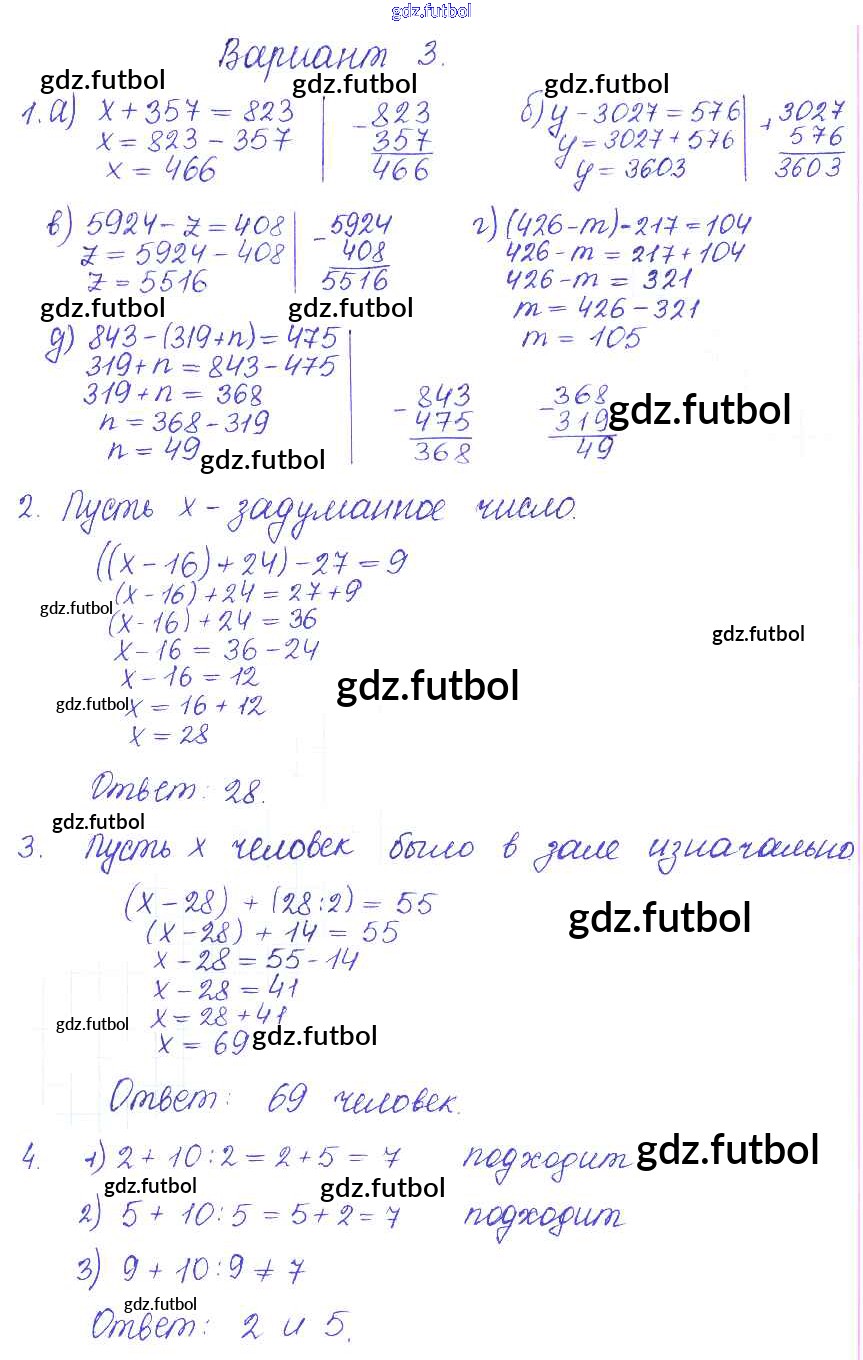 gdz.futbol
Вариант 3.
gdz.futbol gdz.futbol gdz.futbol
1. а) x + 357 = 823
x = 823 - 357
x = 466
- 823
357
466
б) y - 3027 = 576
y = 3027 + 576
y = 3603
+ 3027
576
3603
в) 5924 - z = 408
z = 5924 - 408
z = 5516
- 5924
408
5516
г) (426 - m) - 217 = 104
426 - m = 217 + 104
426 - m = 321
m = 426 - 321
m = 105
gdz.futbol gdz.futbol
д) 843 - (319 + n) = 475
319 + n = 843 - 475
319 + n = 368
n = 368 - 319
n = 49
- 843
475
368
- 368
319
49
gdz.futbol
gdz.futbol
2. Пусть x - задуманное число.
((x - 16) + 24) - 27 = 9
(x - 16) + 24 = 27 + 9
gdz.futbol
(x - 16) + 24 = 36
gdz.futbol
x - 16 = 36 - 24
x - 16 = 12
gdz.futbol
gdz.futbol
x = 16 + 12
x = 28
Ответ: 28.
gdz.futbol
3. Пусть x человек было в зале изначально.
(x - 28) + (28 : 2) = 55
gdz.futbol
(x - 28) + 14 = 55
x - 28 = 55 - 14
x - 28 = 41
gdz.futbol
x = 28 + 41
x = 69
gdz.futbol
Ответ: 69 человек.
4. 1) 2 + 10 : 2 = 2 + 5 = 7 подходит
gdz.futbol
gdz.futbol gdz.futbol
2) 5 + 10 : 5 = 5 + 2 = 7 подходит
3) 9 + 10 : 9 ≠ 7
gdz.futbol
Ответ: 2 и 5.